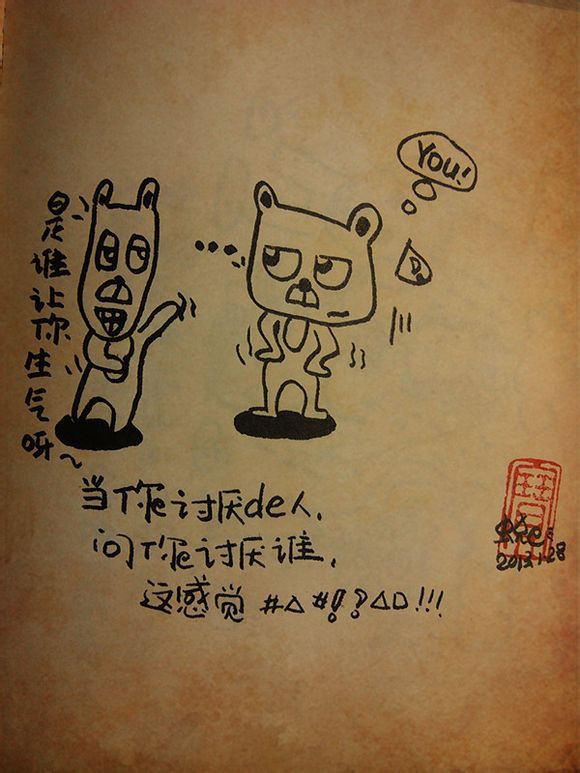 是谁让你生气呀~
YOU!
当你讨厌de人,
问你讨厌谁,
这感觉 #△#!?△D!!!
2013.1.28